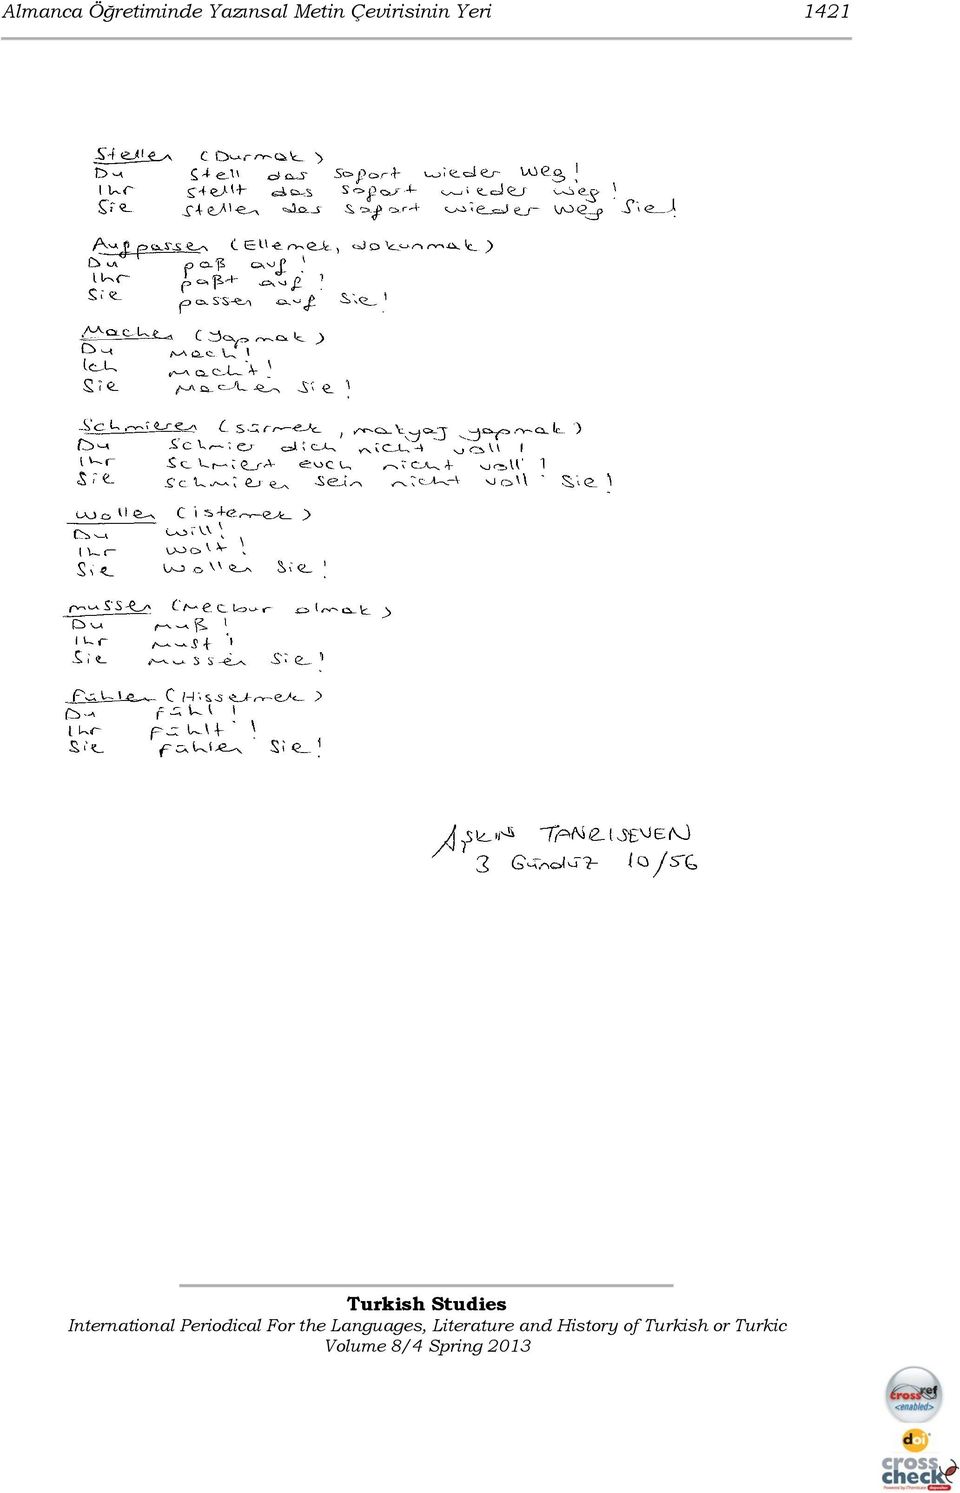 Almanca Öğretiminde Yazınsal Metin Çevirisinin Yeri 1421
Stellen (Durmak)
Du Stell das sofort wieder weg!
Ihr stellt das sofort wieder weg!
Sie stellen das sofort wieder weg Sie!
Aufpassen (Ellemek, dokunmak)
Du paß auf!
Ihr paßt auf!
Sie passen auf Sie!
Machen (Yapmak)
Du Mach!
Ich macht!
Sie Machen Sie!
Schmieren (sürmek, makyaj yapmak)
Du Schmier dich nicht voll!
Ihr Schmiert euch nicht voll!
Sie schmieren sein nicht voll Sie!
wollen (istemek)
Du will!
Ihr wolt!
Sie wollen Sie!
mussen (Mecbur olmak)
Du muß!
Ihr must!
Sie mussen Sie!
Fühlen (Hissetmek)
Du fühl!
Ihr Fühlt!
Sie fühlen Sie!
AŞKIN TANRISEVEN
3 Gündüz 10/56
Turkish Studies
International Periodical For the Languages, Literature and History of Turkish or Turkic
Volume 8/4 Spring 2013
crossref
<enabled>
doi
cross
check
Powered by iThenticate depositor